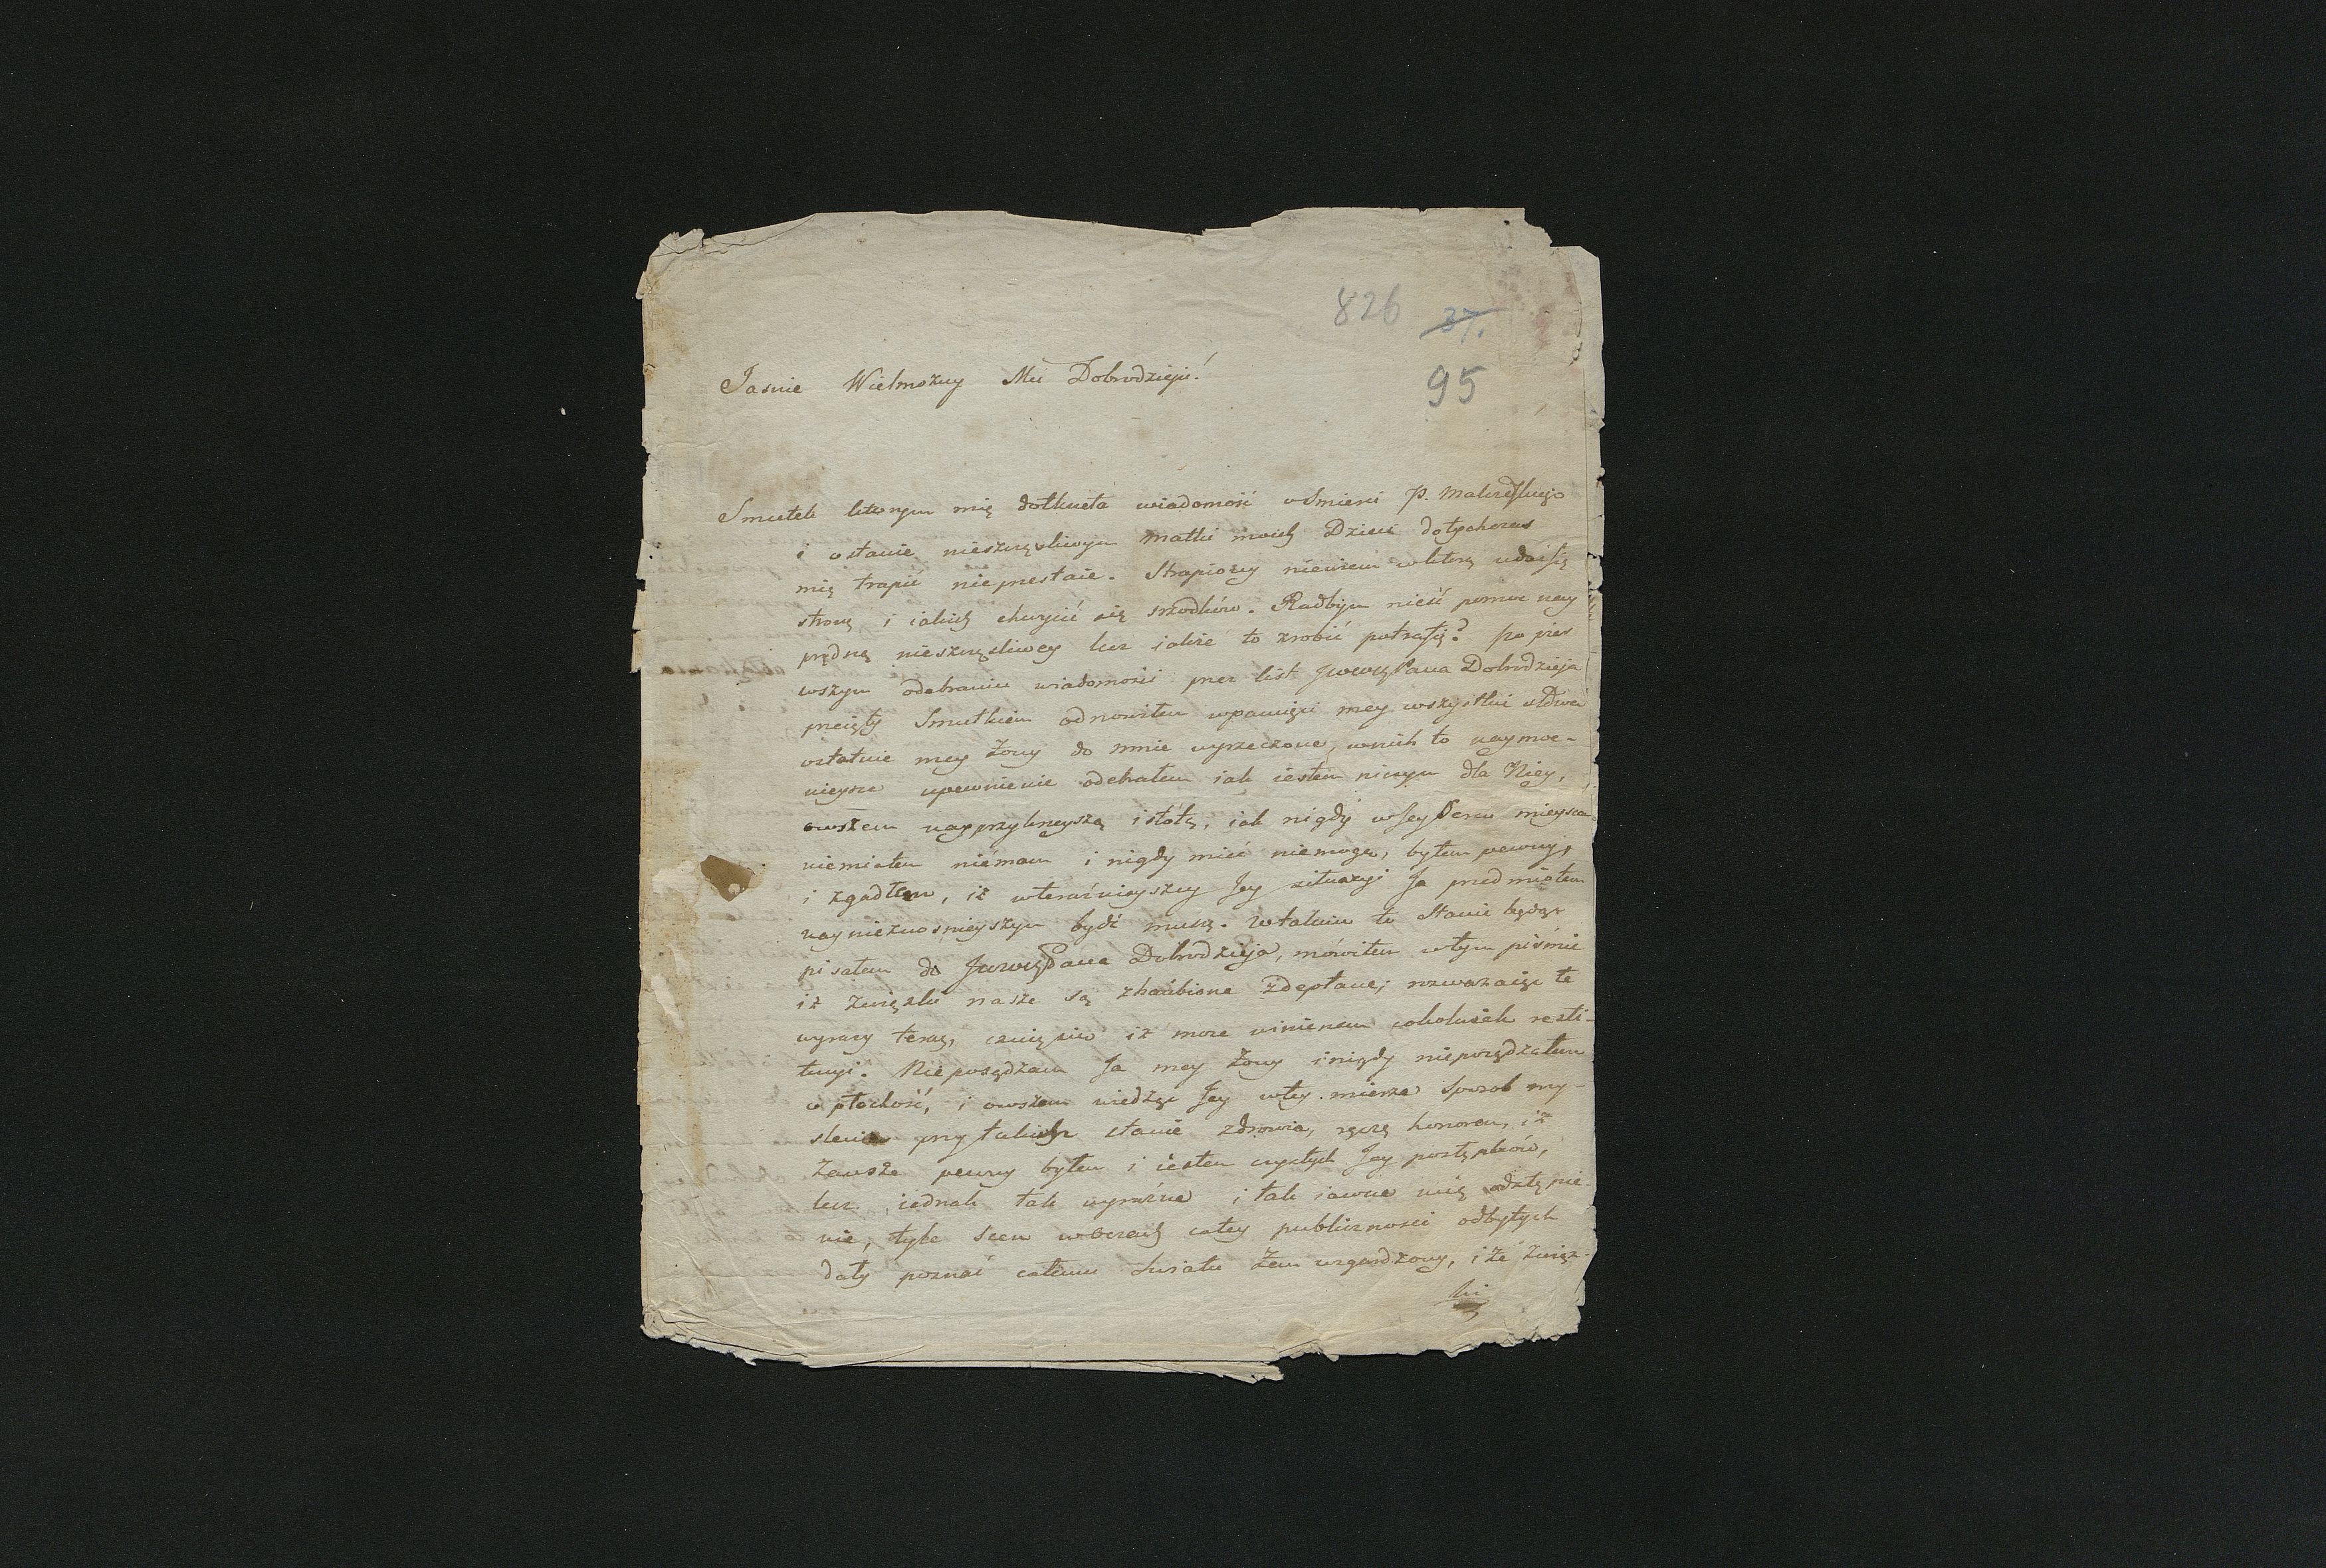 826 37.
Jasnie Wielmożny Mci Dobrodzieju!
95
Smutek którym mię dotkneła wiadomość o Smierci P.
i o stanie nieszczęśliwym Matki moich Dzieci dotychczas
mię trapić nieprzestaie. Strapiony niewiem w którą udaćsię
stronę i iakich chwycić się srzodków. Radbym nieść pomoc nay
prędszą nieszczęśliwey lecz jakże to zrobić potrafię? po pier
wszym odebraniu wiadomości przez list JWWgo Pana Dobrodzieja
przeięty Smutkiem odnowiłem w pamięci mey wszystkie słowa
ostatnie mey Żony do mnie wyrzeczone, w nich to naymoc-
nieysze upewnienie odebrałem iak iestem niczym dla Niey,
owszem nayprzykrzeyszą istotą, iak nigdy w Jey Sercu mieysca
niemiałem niémam i nigdy mieć niemogę, byłem pewny,
i zgadłem, iż w teraźnieyszey Jey situacyi Ja przedmiotem
naynieznośnieyszym bydź muszę. W takim to Stanie będąc
pisałem do JWWgo Pana Dobrodzieja, mówiłem w tym piśmie
iż związki nasze są zhańbione zdeptane; rozważaiąc te
wyrazy teraz, iż może winienem cokolwiek resti-
tucyi. Nieposądzam Ja mey Żony i nigdy nieposądzałem
o płochość, i owszem wiedząc Jey w tey mierze Sposob my-
slenia przy takim stanie zdrowia, ręczę honorem, iż
Zawsze pewny byłem i iestem czystych Jey postępków,
lecz iednak tak wyraźne i tak iawne mię odstąpie-
nie, tyle Scen w oczach całey publiczności odbytych
dały poznać całemu Swiatu żem wzgardzony, i że związ-
ki